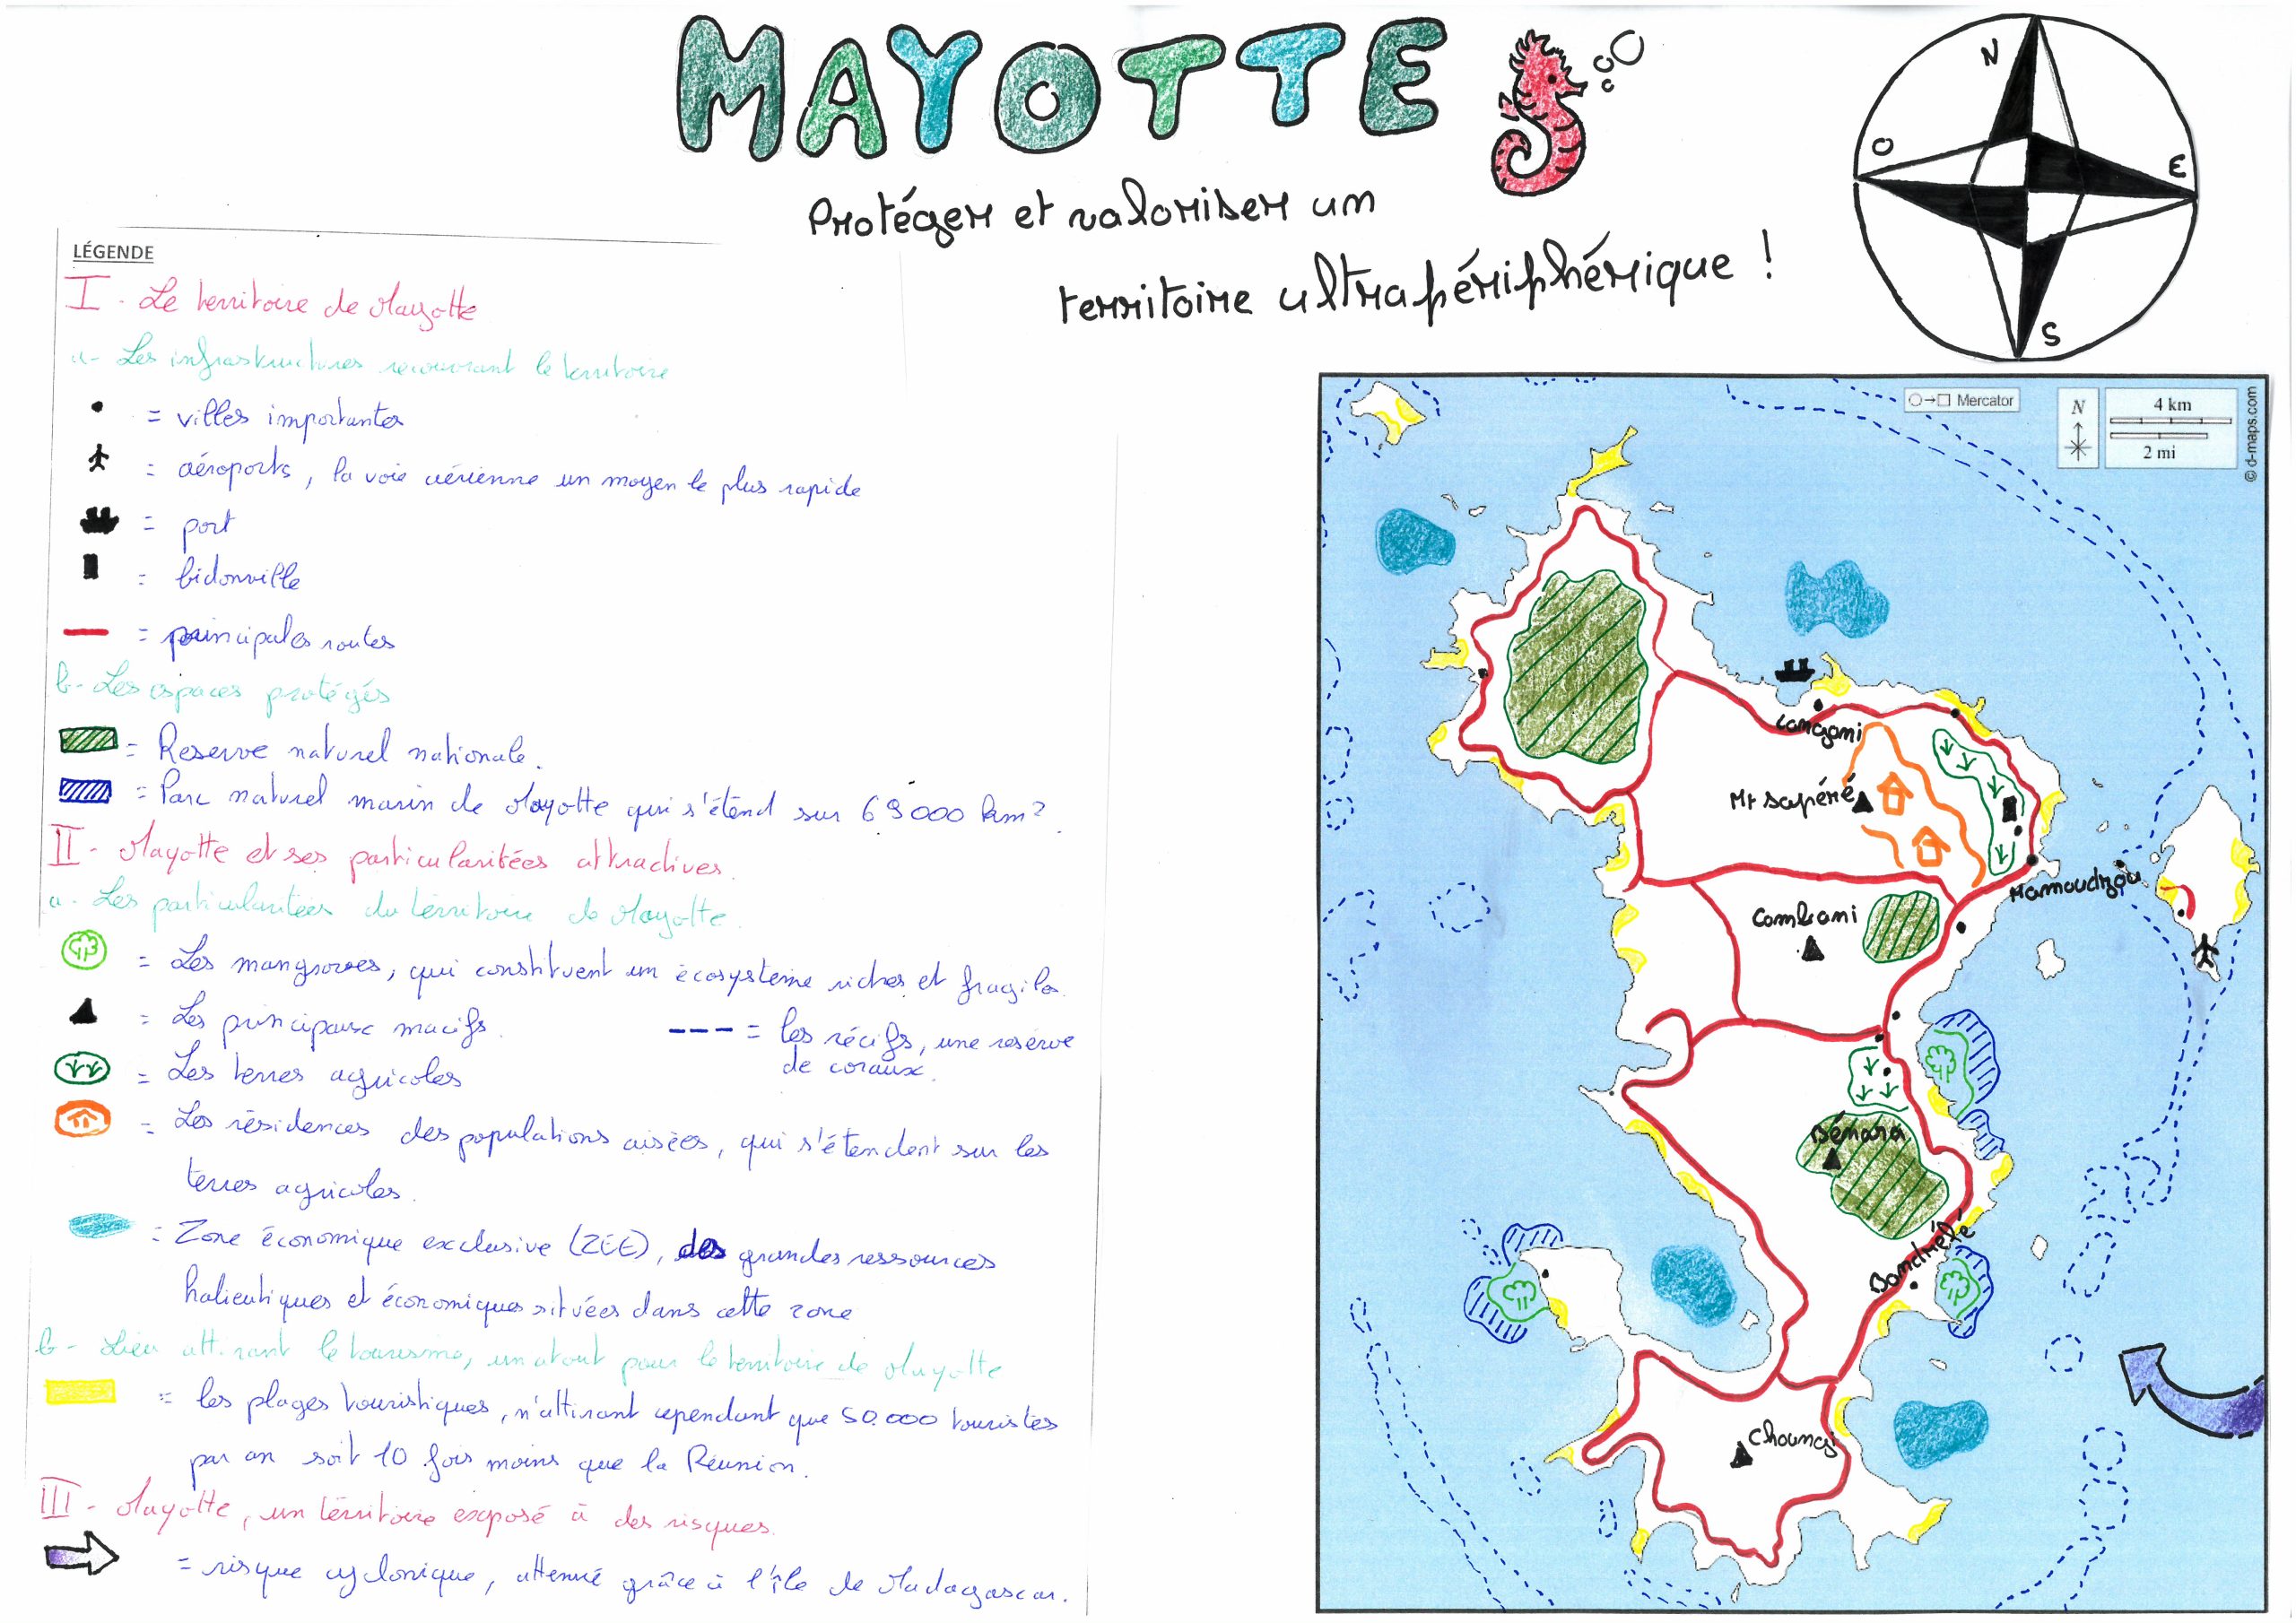 MAYOTTE
Protéger et valoriser un
territoire ultrapériphérique !
N
O
E
S
LÉGENDE
I - Le territoire de Mayotte
a- Les infrastructures recouvrant le territoire
= villes importantes
= aéroports, la voie aérienne un moyen le plus rapide
= port
= bidonville
= principales routes
b- Les espaces protégés
= Reserve naturel nationale.
= Parc naturel marin de Mayotte qui s'étend sur 69000 km².
II - Mayotte et ses particularitées attractives.
a- Les particularitées du térritoire de Mayotte.
= Les mangroves, qui constituent un écosystème riches et fragiles.
= Les principaux macifs.
--- = les récifs, une reserve
de coraux.
= Les terres agricoles
= Les résidences des populations aisées, qui s'étendent sur les
terres agricoles.
= Zone économique exclusive (ZEE), des grandes ressources
halieutiques et économiques situées dans cette zone
b- Lieu attirant le tourisme, un atout pour le territoire de Mayotte
= les plages touristiques, n'attirant cependant que 50.000 touristes
par an soit 10 fois moins que la Réunion.
III - Mayotte, un térritoire exposé à des risques.
= risque cyclonique, attenué grâce à l'île de Madagascar.
Mercator
N
4 km
2 mi
© d-maps.com
Longoni
Mt Sapéré
Mamoudzou
Combani
Bénara
Bandrélé
Choungi